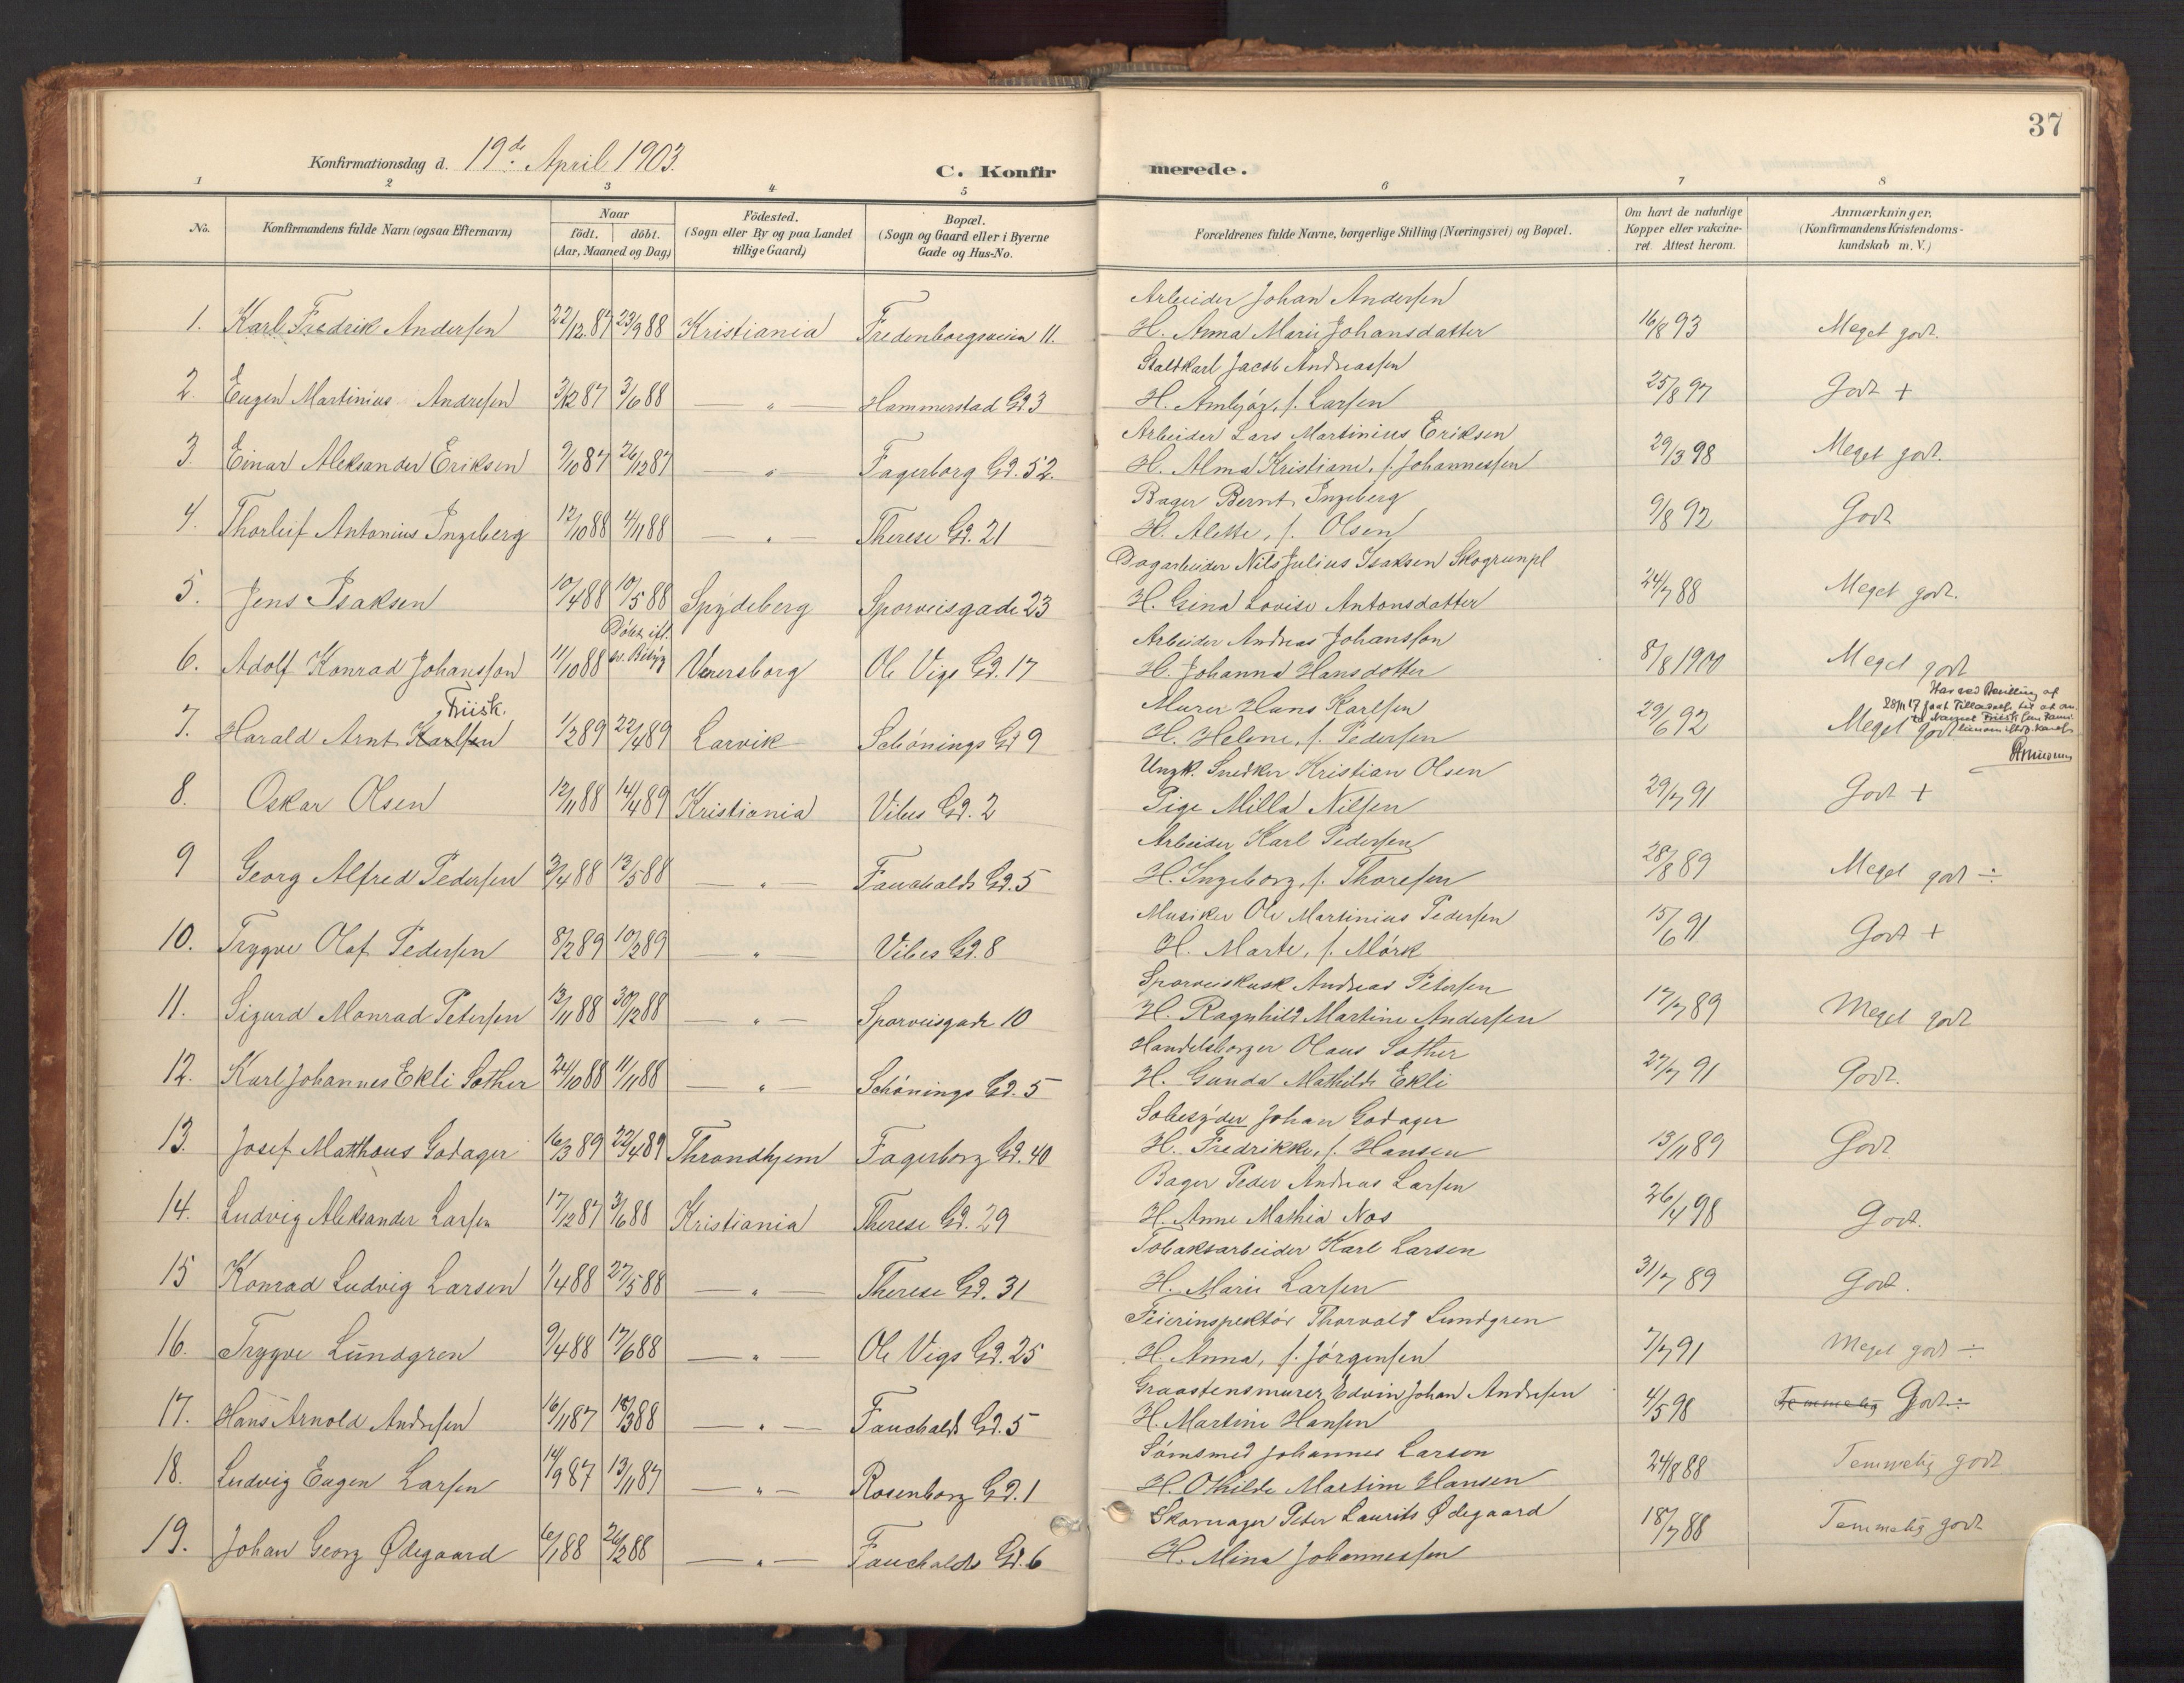 37
Konfirmationsdag d. 19de April 1903.
C. Konfirmerede.
1 2 3 4 5 6 7 8
No. Konfirmandens fulde Navn (ogsaa Efternavn) Naar født. døbt. (Aar, Maaned og Dag) Födested. (Sogn eller By og paa Landet tillige Gaard) Bopæl. (Sogn og Gaard eller i Byerne Gade og Hus-No. Forældrenes fulde Navne, borgerlige Stilling (Næringsvei) og Bopæl. Om havt de naturlige Kopper eller vakcineret. Attest herom. Anmærkninger. (Konfirmandens Kristendomskundskab m. V.)
Arbeider Johan Andersen
1. Karl Fredrik Andersen 22/12 87 23/9 88 Kristiania Fredensborgsveien 11. H. Anna Marie Johansdatter 16/8 93 Meget godt.
Staldkarl Jacob Andreassen
2. Eugen Martinius Andresen 3/12 87 3/6 88 — " — Hammerstad Gd. 3 H. Ambjög, f. Larsen 25/8 97 Godt +
Arbeider Lars Martinius Eriksen
3. Einar Aleksander Eriksen 9/10 87 26/12 87 — " — Fagerborg Gd. 52. H. Alma Kristiane, f. Johannessen 29/3 98 Meget godt.
Bager Bernt Ingeberg
4. Thorleif Antonius Ingeberg 12/10 88 4/11 88 — " — Therese Gd. 21 H. Alette, f. Olsen 9/8 92 Godt
Dagarbeider Nils Julius Isaksen Skogrunpl
5. Jens Isaksen 10/4 88 10/5 88 Spydeberg Sporveisgade 23 H. Gina Lovise Antonsdatter 24/7 88 Meget godt.
Döbt ifl.
Arbeider Andreas Johansson
6. Adolf Konrad Johansson 11/10 88 sv. Bevis Venersborg Ole Vigs Gd. 17 H. Johanna Hansdotter 8/8 1900 Meget godt
Friisk.
Murer Hans Karlsen
Har ved Bevilling af 28/11 17 faat Tilladelse til at an. Navnet Friisk
7. Harald Arnt Karlsen 1/2 89 22/4 89 Larvik Schönings Gd 9 H. Helene, f. Pedersen 29/6 92 Meget godt
Ungk. Snedker Kristian Olsen
8. Oskar Olsen 12/11 88 14/4 89 Kristiania Vibes Gd. 2 Pige Milla Nilsen 29/7 91 Godt +
Arbeider Karl Pedersen
9 Georg Alfred Pedersen 3/4 88 13/5 88 — " — Fauchalds Gd. 5 H. Ingeborg, f. Thoresen 28/8 89 Meget godt ÷
Musiker Ole Martinius Pedersen
10. Trygve Olaf Pedersen 8/2 89 10/2 89 — " — Vibes Gd. 8 H. Marte, f. Mörk 15/6 91 Godt +
Sporveiskusk Andreas Petersen
11. Sigurd Monrad Petersen 13/11 88 30/12 88 — " — Sporveisgade 10 H. Ragnhild Martine Andersen 17/7 89 Meget godt
Handelsborger Olaus Sother
12. Karl Johannes Ekli Sother 24/10 88 11/11 88 — " — Schönings Gd. 5 H. Gunda Mathilde Ekli 27/7 91 Godt.
Johan Godager
13. Josef Matthæus Godager 16/3 89 22/4 89 Throndhjem Fagerborg Gd. 40 H. Fredrikke, f. Hansen 13/11 89 Godt
Bager Peder Andreas Larsen
14. Ludvig Aleksander Larsen 17/12 87 3/6 88 Kristiania Therese Gd. 29 H. Anne Mathia Nos 26/4 98 Godt.
Tobaksarbeider Karl Larsen
15 Konrad Ludvig Larsen 1/4 88 27/5 88 — " — Therese Gd. 31 H. Marie Larsen 31/7 89 Godt.
Feierinspektör Thorvald Lundgren
16. Trygve Lundgren 9/4 88 17/6 88 — " — Ole Vigs Gd. 25 H. Anna, f. Jörgensen 7/7 91 Meget godt ÷
Graastensmurer Edvin Johan Andresen
17. Hans Arnold Andresen 16/11 87 18/3 88 — " — Fauchalds Gd. 5 H. Martine Hansen 4/5 98 Temmelig Godt ÷
Sömsmed Johannes Larsen
18. Ludvig Eugen Larsen 14/9 87 13/11 87 — " — Rosenborg Gd. 1 H. Othilde Martine Hansen 24/8 88 Temmelig godt
Skomager Peter Laurits Ødegaard
19. Johan Georg Ødegaard 6/1 88 26/2 88 — " — Fauchalds Gd. 6 H. Mina Johannessen 18/7 88 Temmelig godt